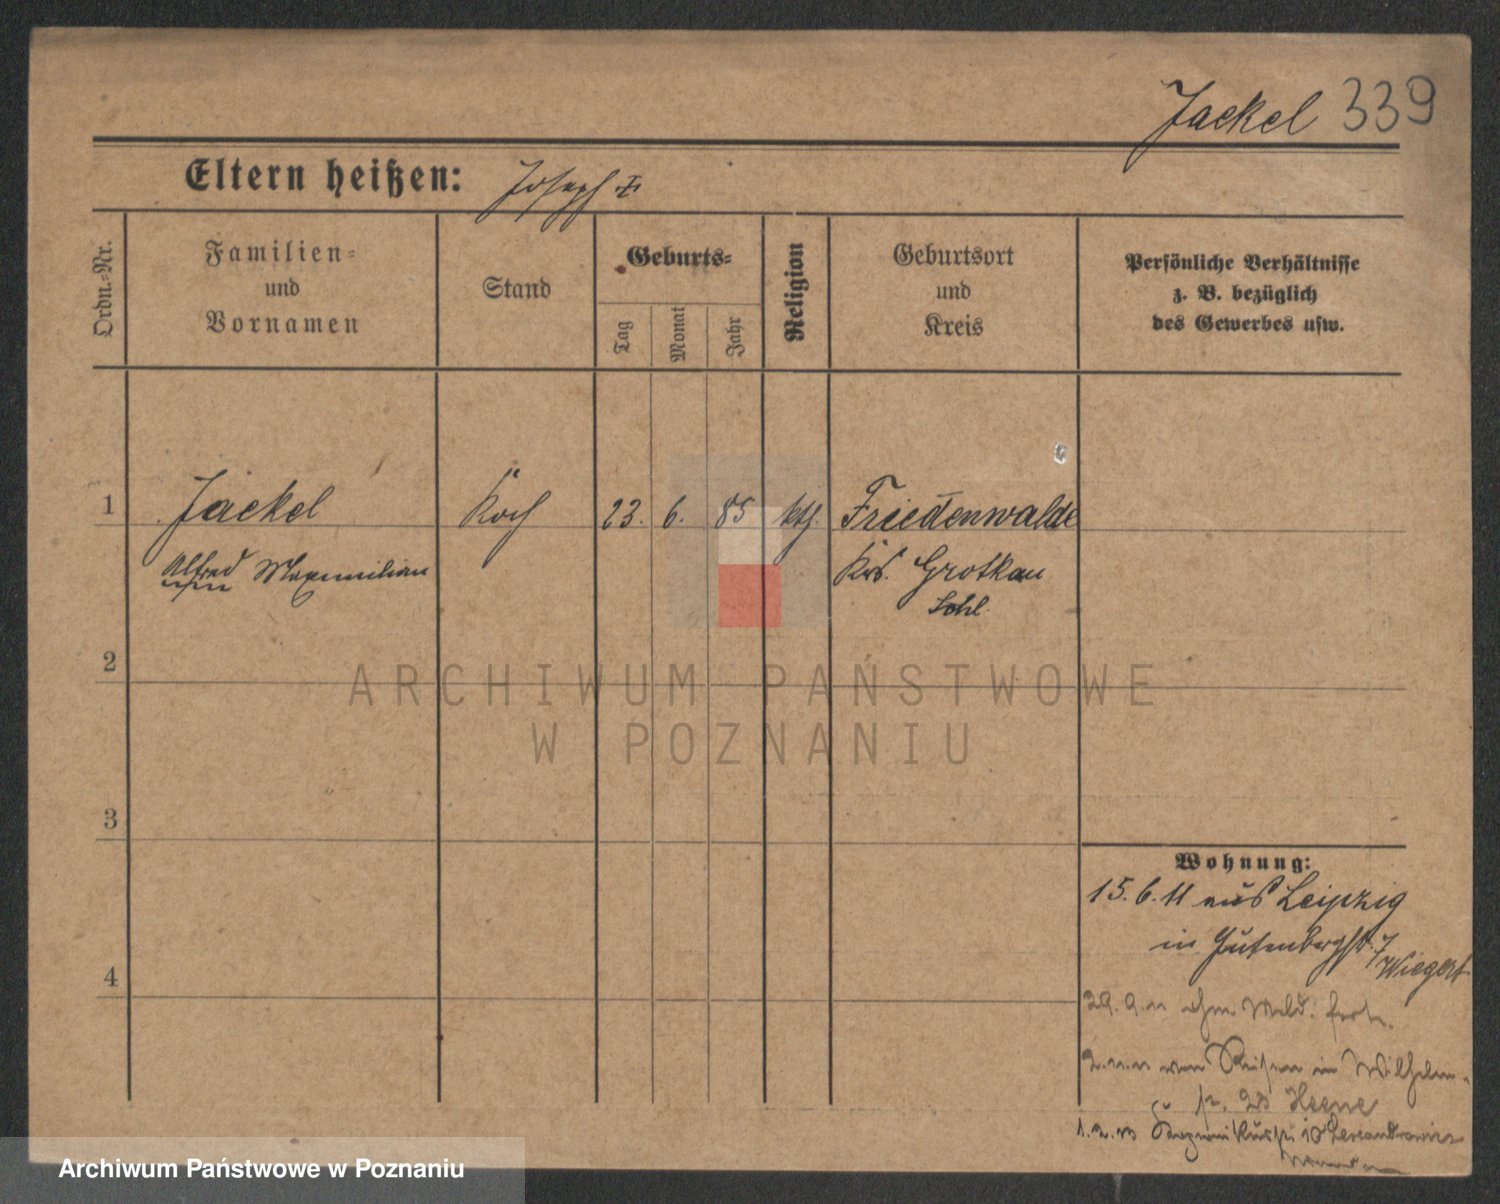 Jackel 339
Eltern heißen: Joseph ‡
Ordn.-Nr.
Familien-
und
Vornamen
Stand
Geburts-
Tag
Monat
Jahr
Religion
Geburtsort
und
Kreis
Persönliche Verhältnisse
z. B. bezüglich
des Gewerbes usw.
1 Jackel Koch 23. 6. 85 kth. Friedenwalde
Alfred Maximilian Krs. Grotkau
Schl.
2
ARCHIWUM PAŃSTWOWE
W POZNANIU
3
Wohnung:
15.6.11 aus Leipzig
in Gutenbergstr. 7
Wiegert
4
29.9.11 ohne Meld. fort.
2.11.11 von Reisen in Wilhelm-
str. 28
1.2.
Archiwum Państwowe w Poznaniu